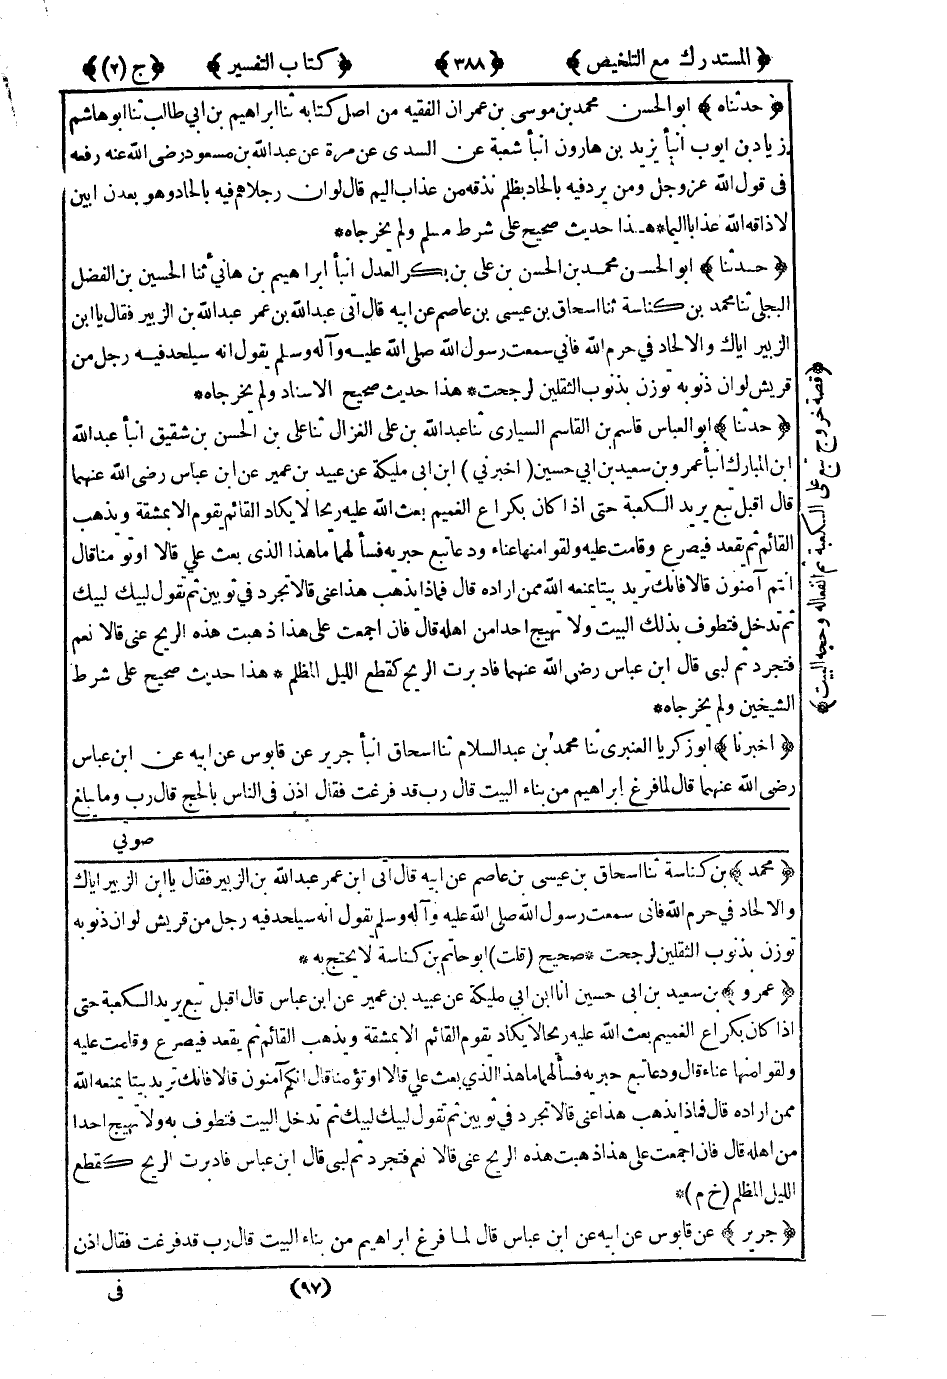 ﴿ المستدرك مع التلخيص ﴾ ﴿ ٣٨٨ ﴾ ﴿ كتاب التفسير ﴾ ﴿ ج (٢) ﴾
﴿ حدثناه ﴾ ابو الحسن محمد بن موسى بن عمران الفقيه من اصل كتابه ثنا ابراهيم بن ابي طالب ثنا ابو هاشم
زياد بن ايوب انبأ يزيد بن هارون انبأ شعبة عن السدى عن مرة عن عبد الله بن مسعود رضى الله عنه رفعه
فى قول الله عز وجل ومن يرد فيه بالحاد بظلم نذقه من عذاب اليم قال لو ان رجلا هم فيه بالحاد وهو بعدن ابين
لاذاقه الله عذابا اليما * هذا حديث صحيح على شرط مسلم ولم يخرجاه *
﴿ حدثنا ﴾ ابو الحسن محمد بن الحسن بن على بن بكر العدل انبأ ابراهيم بن هاني ثنا الحسين بن الفضل
البجلي ثنا محمد بن كناسة ثنا اسحاق بن عيسى بن عاصم عن ابيه قال اتى عبد الله بن عمر عبد الله بن الزبير فقال يا ابن
الزبير اياك والالحاد في حرم الله فاني سمعت رسول الله صلى الله عليه وآله وسلم يقول انه سيلحد فيه رجل من
قريش لو ان ذنوبه توزن بذنوب الثقلين لرجحت * هذا حديث صحيح الاسناد ولم يخرجاه *
﴿ حدثنا ﴾ ابو العباس قاسم بن القاسم السيارى ثنا عبد الله بن على الغزال ثنا على بن الحسن بن شقيق انبأ عبد الله
ابن المبارك انبأ عمرو بن سعيد بن ابي حسين ( اخبرني ) ابن ابى مليكة عن عبيد بن عمير عن ابن عباس رضى الله عنهما
قال اقبل تبع يريد الكعبة حتى اذا كان بكراع الغميم بعث الله عليه ريحا لا يكاد القائم يقوم الا بمشقة ويذهب
القائم ثم يقعد فيصرع وقامت عليه ولقوا منها عناء ودعا تبع حبريه فسألهما ما هذا الذى بعث علي قالا اوتؤمنا قال
انتم آمنون قالا فانك تريد بيتا يمنعه الله ممن اراده قال فماذا يذهب هذا عنى قالا تجرد في ثوبين ثم تقول لبيك لبيك
ثم تدخل فتطوف بذلك البيت ولا تهيج احدا من اهله قال فان اجمعت على هذا ذهبت هذه الريح عنى قالا نعم
فتجرد ثم لبى قال ابن عباس رضي الله عنهما فادبرت الريح كقطع الليل المظلم * هذا حديث صحيح على شرط
الشيخين ولم يخرجاه *
﴿ اخبرنا ﴾ ابو زكريا العنبرى ثنا محمد بن عبد السلام ثنا اسحاق انبأ جرير عن قابوس عن ابيه عن ابن عباس
رضى الله عنهما قال لما فرغ ابراهيم من بناء البيت قال رب قد فرغت فقال اذن فى الناس بالحج قال رب وما يبلغ
صوتي
﴿ قصة خروج تبع على الكعبة ثم انفعاله وحجه البيت ﴾
﴿ محمد ﴾ بن كناسة ثنا اسحاق بن عيسى بن عاصم عن ابيه قال اتى ابن عمر عبد الله بن الزبير فقال يا ابن الزبير اياك
والالحاد في حرم الله فانى سمعت رسول الله صلى الله عليه وآله وسلم يقول انه سيلحد فيه رجل من قريش لو ان ذنوبه
توزن بذنوب الثقلين لرجحت * صحيح ( قلت ) ابو حاتم بن كناسة لا يحتج به *
﴿ عمرو ﴾ بن سعيد بن ابى حسين انا ابن ابي مليكة عن عبيد بن عمير عن ابن عباس قال اقبل تبع يريد الكعبة حتى
اذا كان بكراع الغميم بعث الله عليه ريحا لا يكاد يقوم القائم الا بمشقة ويذهب القائم ثم يقعد فيصرع وقامت عليه
ولقوا منها عناء قال ودعا تبع حبريه فسألهما ما هذا الذي بعث علي قالا اوتؤمنا قال انكم آمنون قالا فانك تريد بيتا يمنعه الله
ممن اراده قال فماذا يذهب هذا عني قالا تجرد في ثوبين ثم تقول لبيك لبيك ثم تدخل البيت فتطوف به ولا تهيج احدا
من اهله قال فان اجمعت على هذا ذهبت هذه الريح عنى قالا نعم فتجرد ثم لبى قال ابن عباس فادبرت الريح كقطع
الليل المظلم ( خ م ) *
﴿ جرير ﴾ عن قابوس عن ابيه عن ابن عباس قال لما فرغ ابراهيم من بناء البيت قال رب قد فرغت فقال اذن
(٩٧) فى